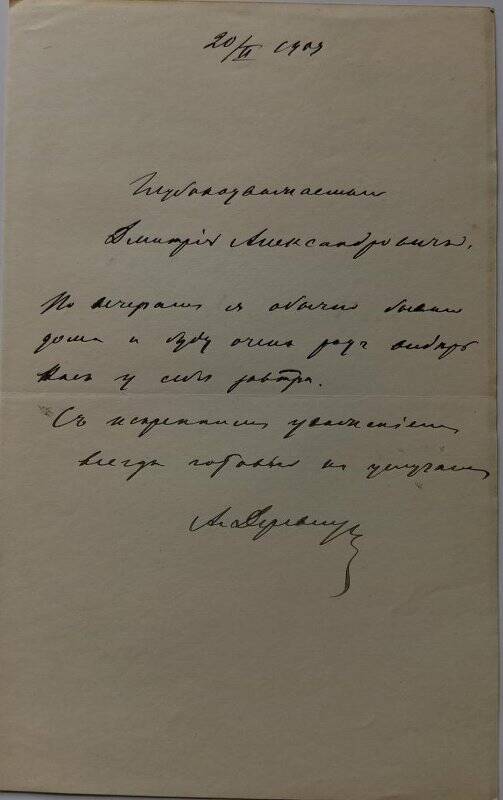 20/II 1909
Глубокоуважаемый
Дмитрій Александровичъ,
По вечерамъ я обычно бываю
дома и буду очень радъ видѣть
Васъ у себя завтра.
Съ искреннимъ уваженіемъ
всегда готовый къ услугамъ
А.